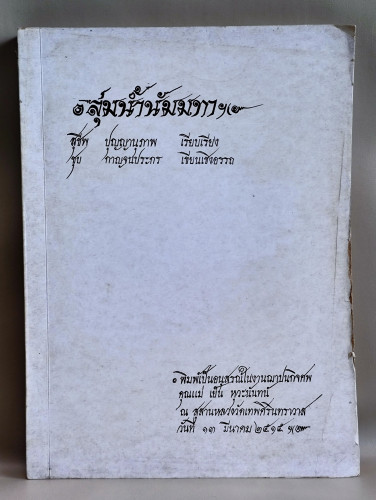 ๏ลุ่มน้ำนัมมทาฯ๛
สุชีพ ปุญญานุภาพ เรียบเรียง
ชุบ กาญจนประกร เขียนเชิงอรรถ
๏ พิมพ์เป็นอนุสรณ์ในงานฌาปนกิจศพ
คุณแม่ เย็น
ณ สุสานหลวงวัดเทพศิรินทราวาส
วันที่ ๑๓ มีนาคม ๒๕๑๕ ฯ๛